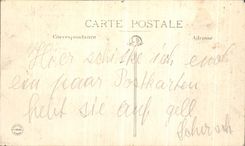 CARTE POSTALE
Correspondance Adresse
Hier schicke ich euch
ein paar Postkarten
hebt sie auf gell